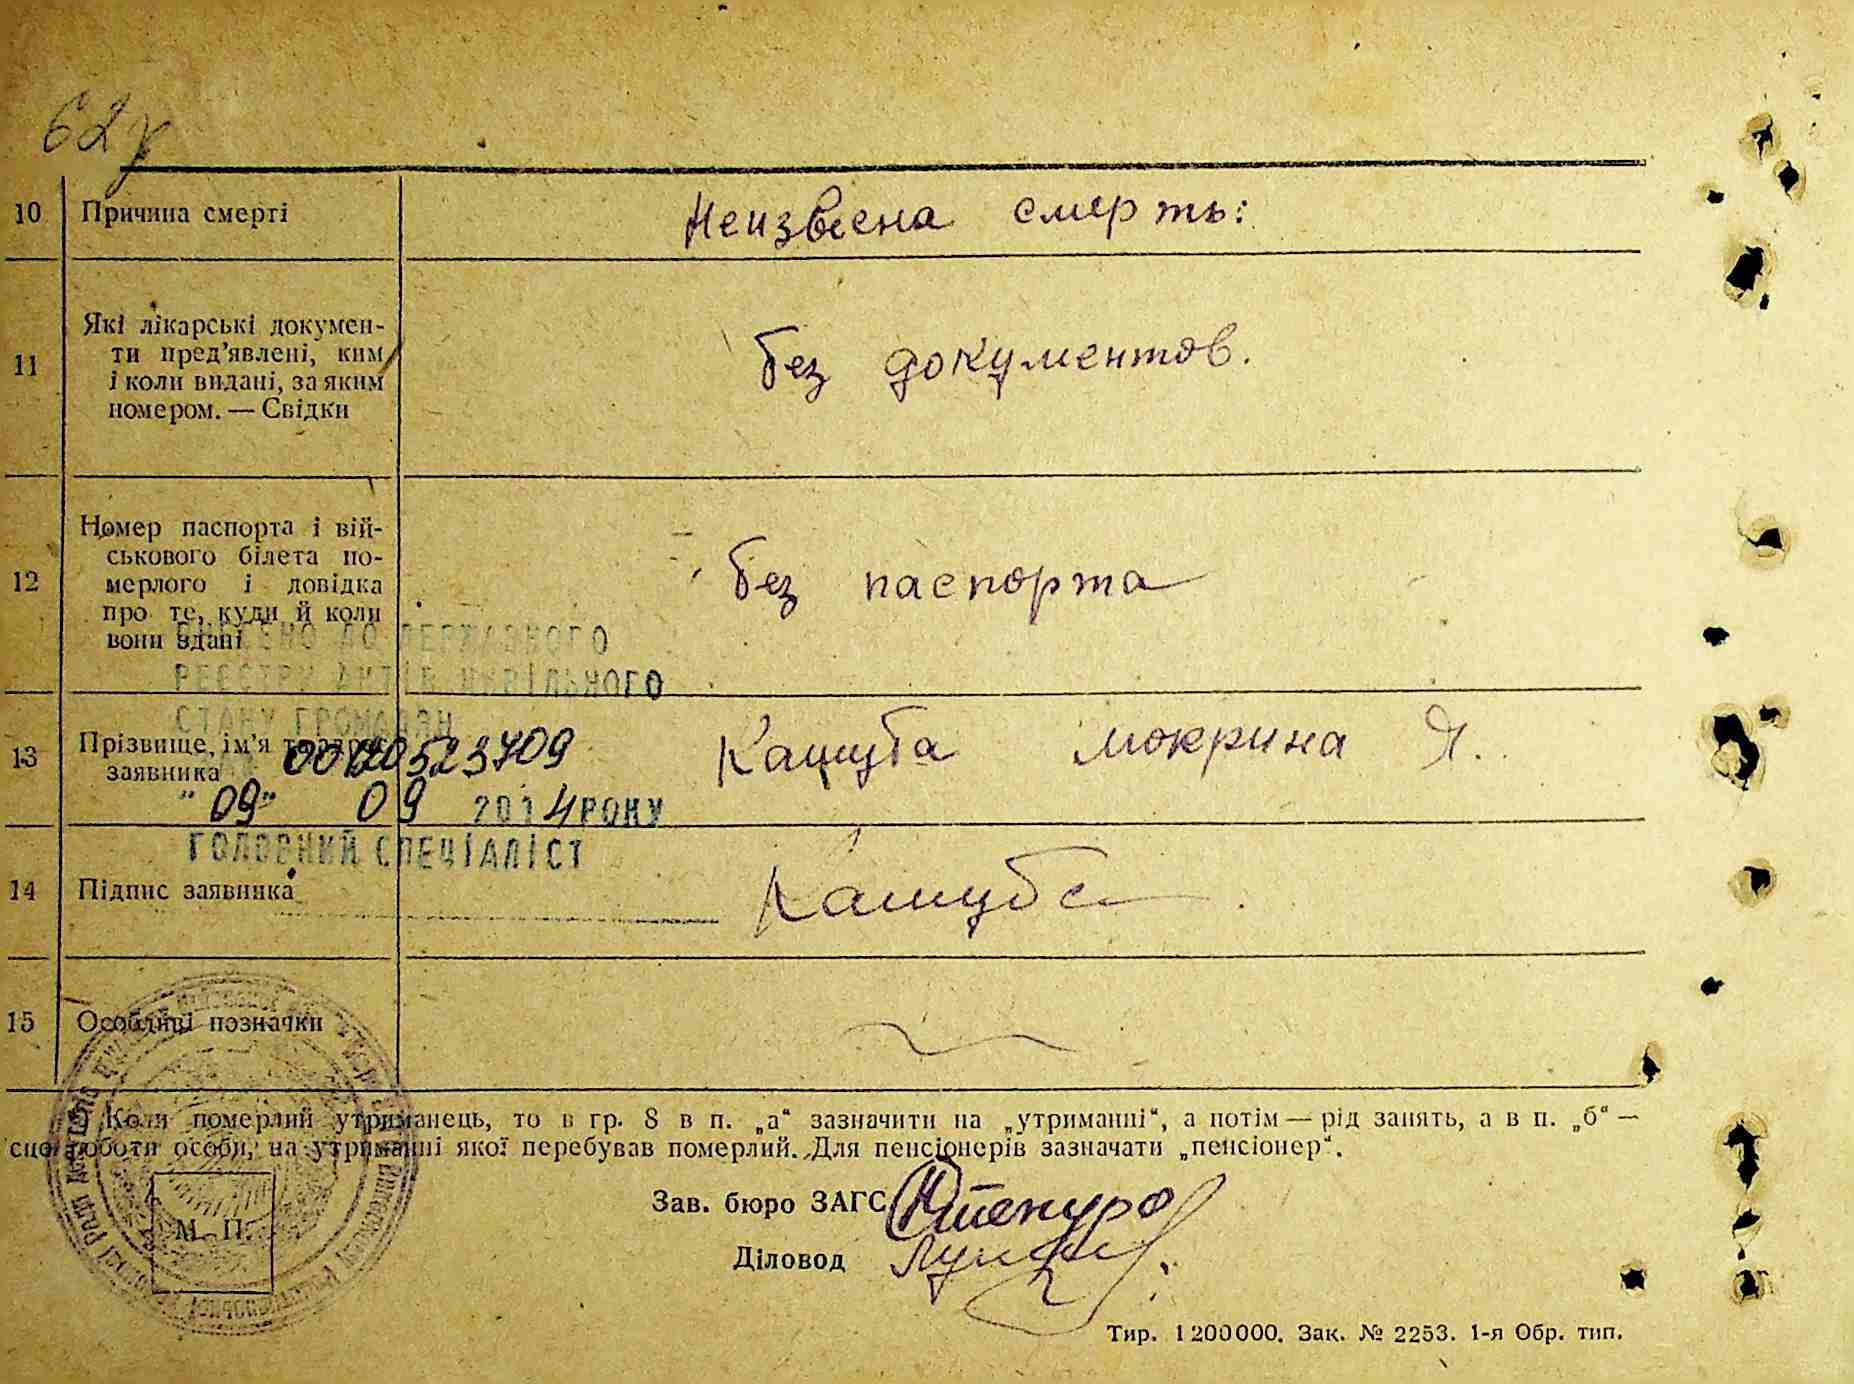 62
10 Причина смерті Неизвесна смерть:
11 Які лікарські докумен-
ти пред’явлені, ким
і коли видані, за яким
номером. — Свідки
без документов.
12 Номер паспорта і вій-
ськового білета по-
мерлого і довідка
про те, куди й коли
вони здані
без паспорта
ВНЕСЕНО ДО ДЕРЖАВНОГО
РЕЄСТРУ АКТІВ ЦИВІЛЬНОГО
СТАНУ ГРОМАДЯН
13 Прізвище, ім’я
заявника
Кашуба мокрина Я.
00120523709
"09" 09 2014 РОКУ
ГОЛОВНИЙ СПЕЦІАЛІСТ
14 Підпис заявника Кашуба
15 Особливі позначки
Коли померлий утриманець, то в гр. 8 в п. „а“ зазначити на „утриманні“, а потім — рід занять, а в п. „б“ —
роботи особи, на утриманні якої перебував померлий. Для пенсіонерів зазначати „пенсіонер“.
Зав. бюро ЗАГС
Діловод
М. П.
Тир. 1200000. Зак. № 2253. 1-я Обр. тип.